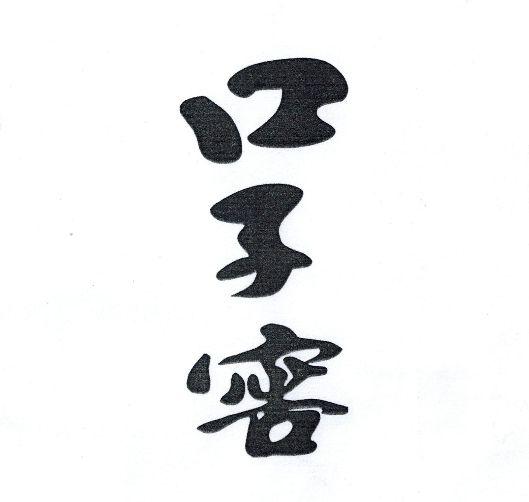 口子窖